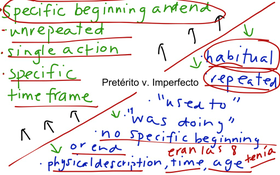 • specific beginning and end
• unrepeated
• single action
• specific
time frame
habitual
repeated
Pretérito v. Imperfecto
• "used to"
• "was doing"
• no specific beginning
or end
eran las 8
• physical description, time, age
tenía